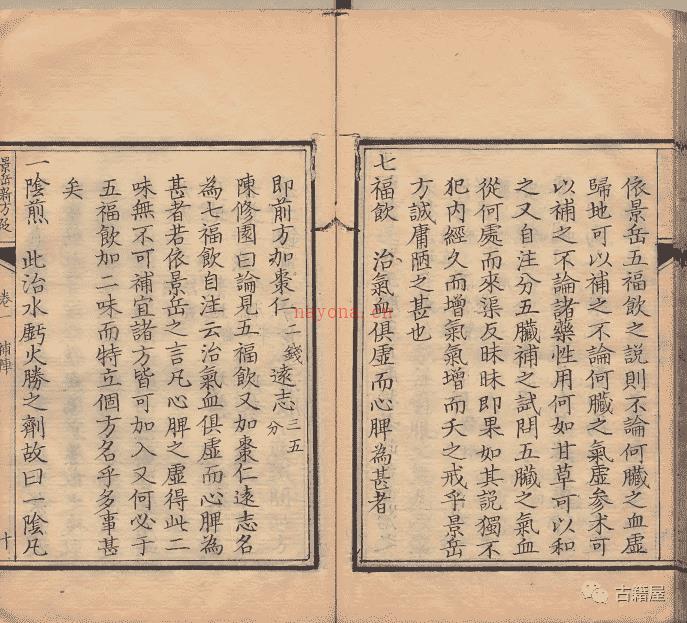 依景岳五福飲之說則不論何臟之血虛
歸地可以補之不論何臟之氣虛參朮可
以補之不論諸藥性用何如甘草可以和
之又自注分五臟補之試問五臟之氣血
從何處而來渠反昧昧即果如其說獨不
犯內經久而增氣氣增而夭之戒乎景岳
方誠庸陋之甚也
七福飲　治氣血俱虛而心脾為甚者
即前方加棗仁二錢遠志三五分
陳修園曰論見五福飲又加棗仁遠志名
為七福飲自注云治氣血俱虛而心脾為
甚者若依景岳之言凡心脾之虛得此二
味無不可補宜諸方皆可加入又何必于
五福飲加二味而特立個方名乎多事甚
矣
一陰煎　此治水虧火勝之劑故曰一陰凡
景岳新方砭
卷一
補陣
十
nayona.cn
古籍屋